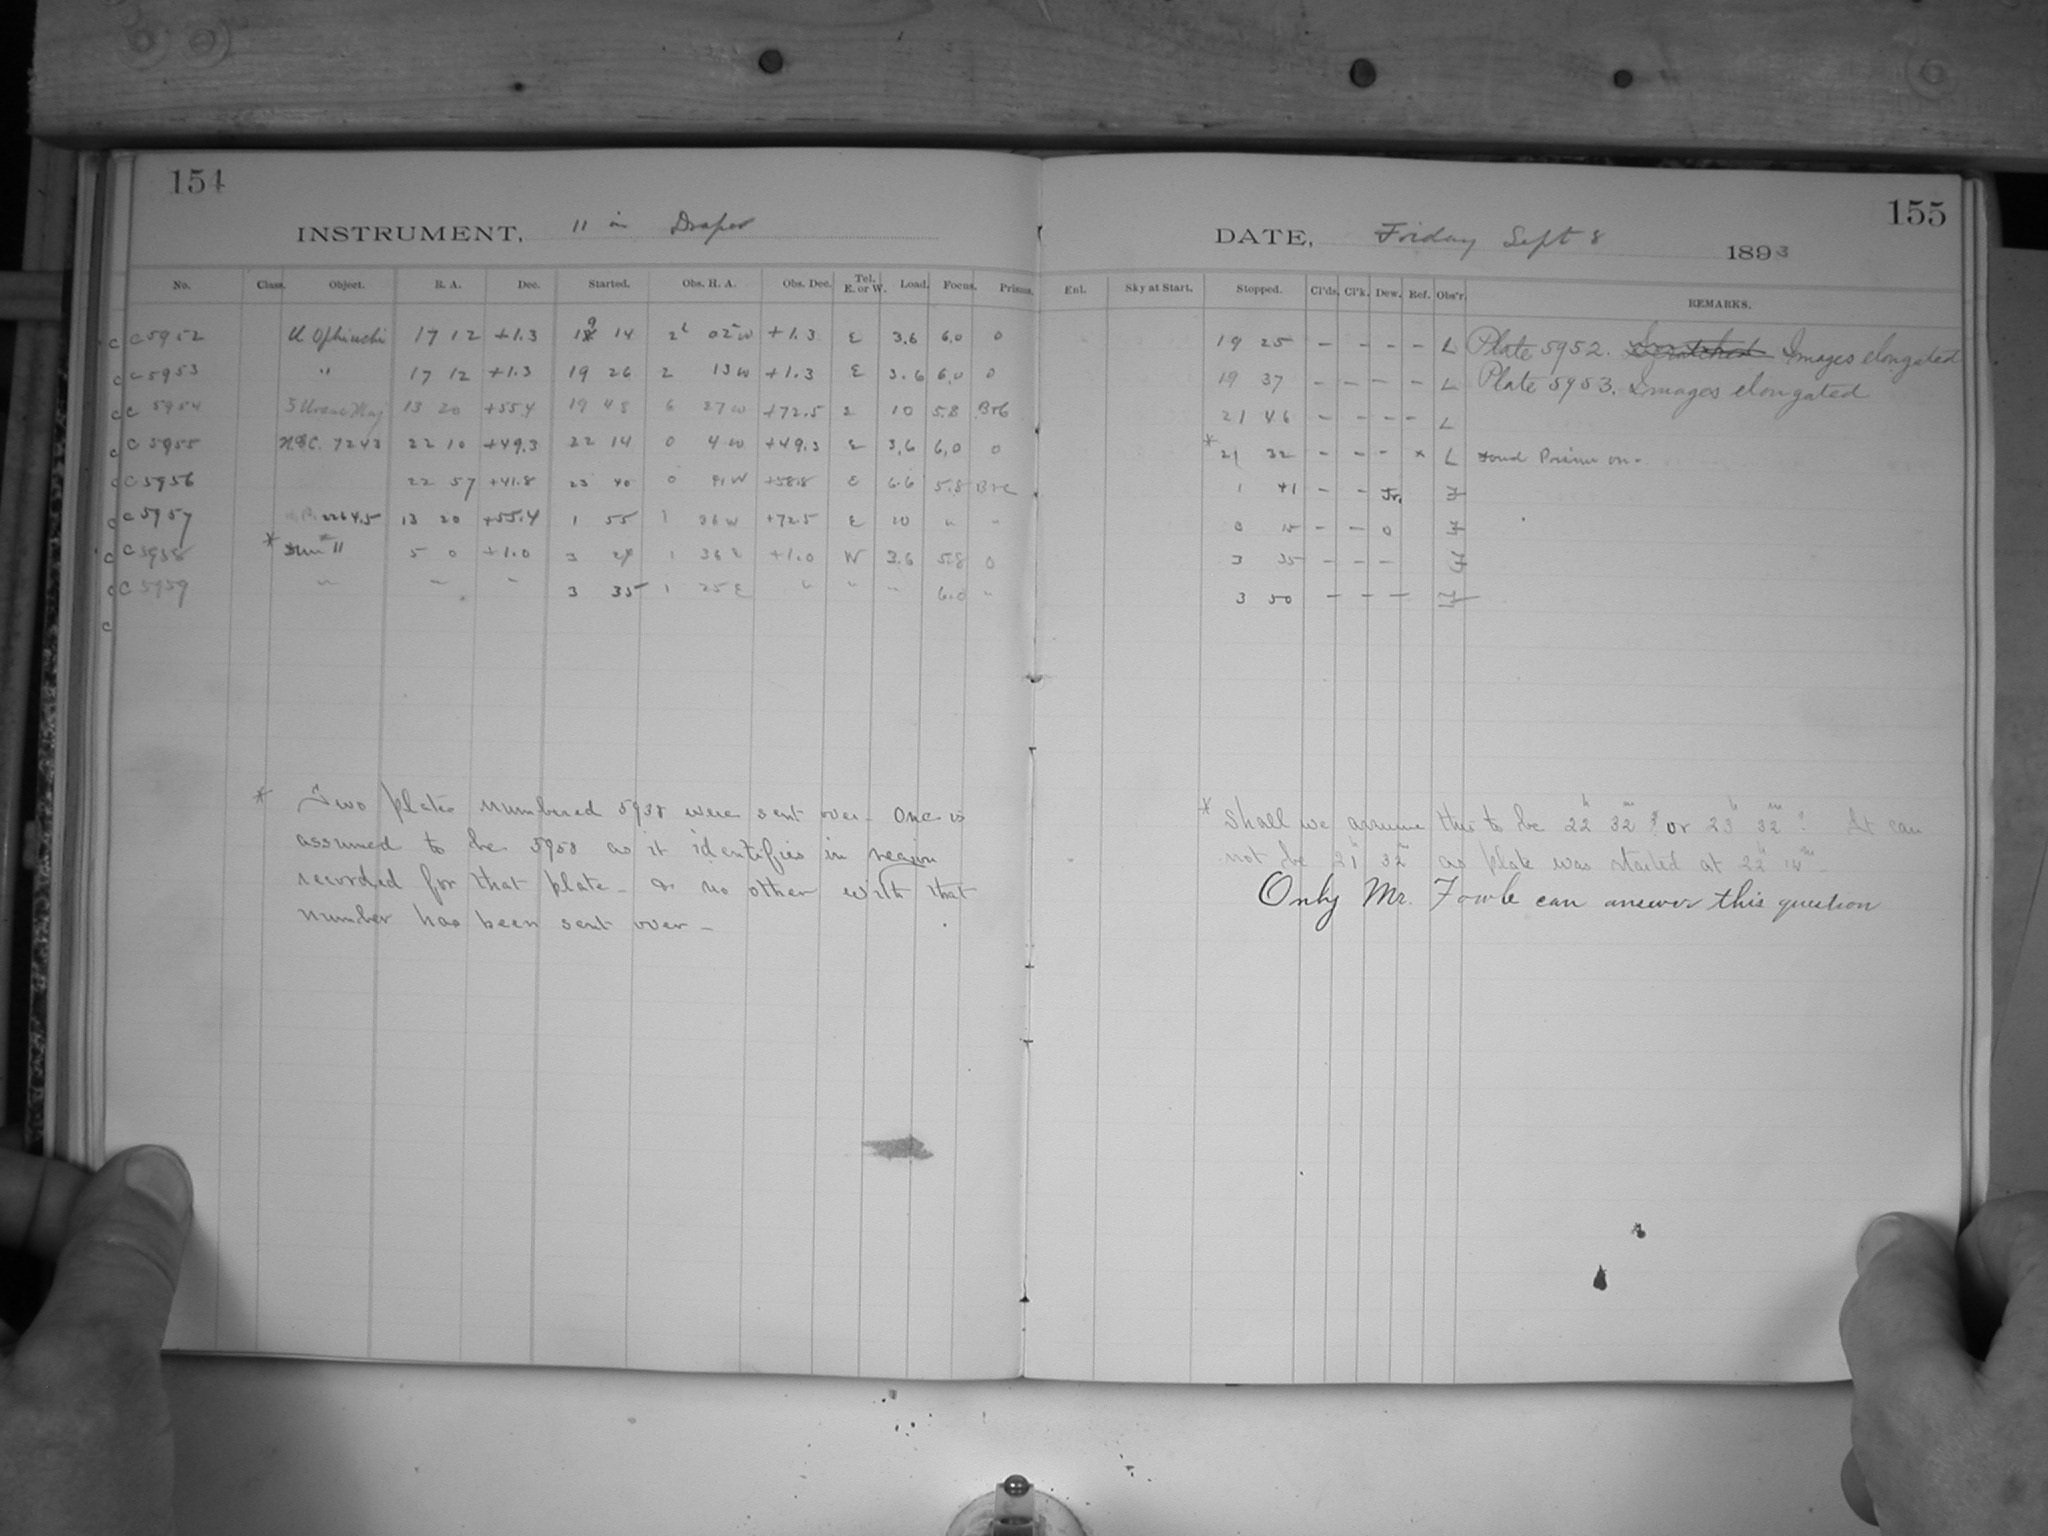 154
INSTRUMENT, 11 in Draper
No. Class. Object. R. A. Dec. Started. Obs. H. A. Obs. Dec. Tel. E. or W. Load. Focus. Prisms.
c C 5952 U Ophiuchi 17 12 +1.3 19 14 2 02 W +1.3 E 3.6 6.0 0
c C 5953 " 17 12 +1.3 19 26 2 13 W +1.3 E 3.6 6.0 0
c C 5954 13 20 +55.4 19 48 6 27 W +72.5 E 10 5.8
c C 5955 N.G.C. 7243 22 10 +49.3 22 14 0 4 W +49.3 E 3.6 6.0 0
c C 5956 22 57 +41.8 23 40 0 41 W +58.8 E 6.6 5.8
c C 5957 13 20 +55.4 1 55 1 36 W +72.5 E 10 " "
c C 5958 * 5 0 +1.0 3 1 36 E +1.0 W 3.6 5.8 0
c C 5959 " " " 3 35 1 25 E " " " 6.0 "
c
* Two plates numbered 5938 were sent over - One is
assumed to be 5958 as it identifies in region
recorded for that plate - & no other with that
number has been sent over -
155
DATE, Friday Sept 8 1893
Enl. Sky at Start. Stopped. Cl'ds. Cl'k. Dew. Ref. Obs'r. REMARKS.
19 25 - - - - L Plate 5952. Images elongated
19 37 - - - - L Plate 5953. Images elongated
21 46 - - - - L
* 21 32 - - - * L found Prism on -
1 41 - - Fr. F
0 15 - - 0 F
3 35 - - - F
3 50 - - - F
* Shall we assume this to be 22h 32m? or 23h 32m? It can
not be 21h 32m as plate was started at 22h 14m -
Only Mr. Fowle can answer this question